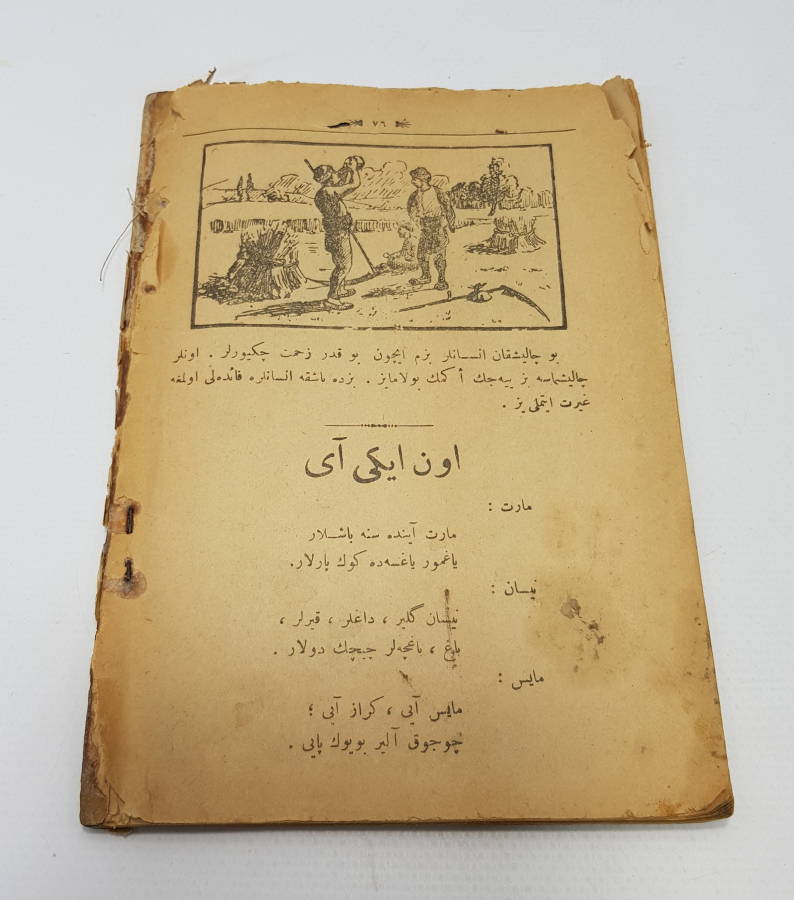 ٧٦
بو چاليشقان انسانلر بزم ايچون بو قدر زحمت چكيورلر . اونلر
چاليشماسه بز ييه‌جك أكمك بولامايز . بزده باشقه انسانلره فائده‌لى اولمغه
غيرت ايتملى يز .
اون ايكى آى
مارت :
مارت آينده سنه باشلار
ياغمور ياغسه‌ده كوك پارلار.
نيسان :
نيسان گلير ، داغلر ، قيرلر ،
باغ ، باغچه‌لر چيچك دولار .
مايس :
مايس آيى ، كراز آيى ؛
چوجوق آلير بويوك پايى .